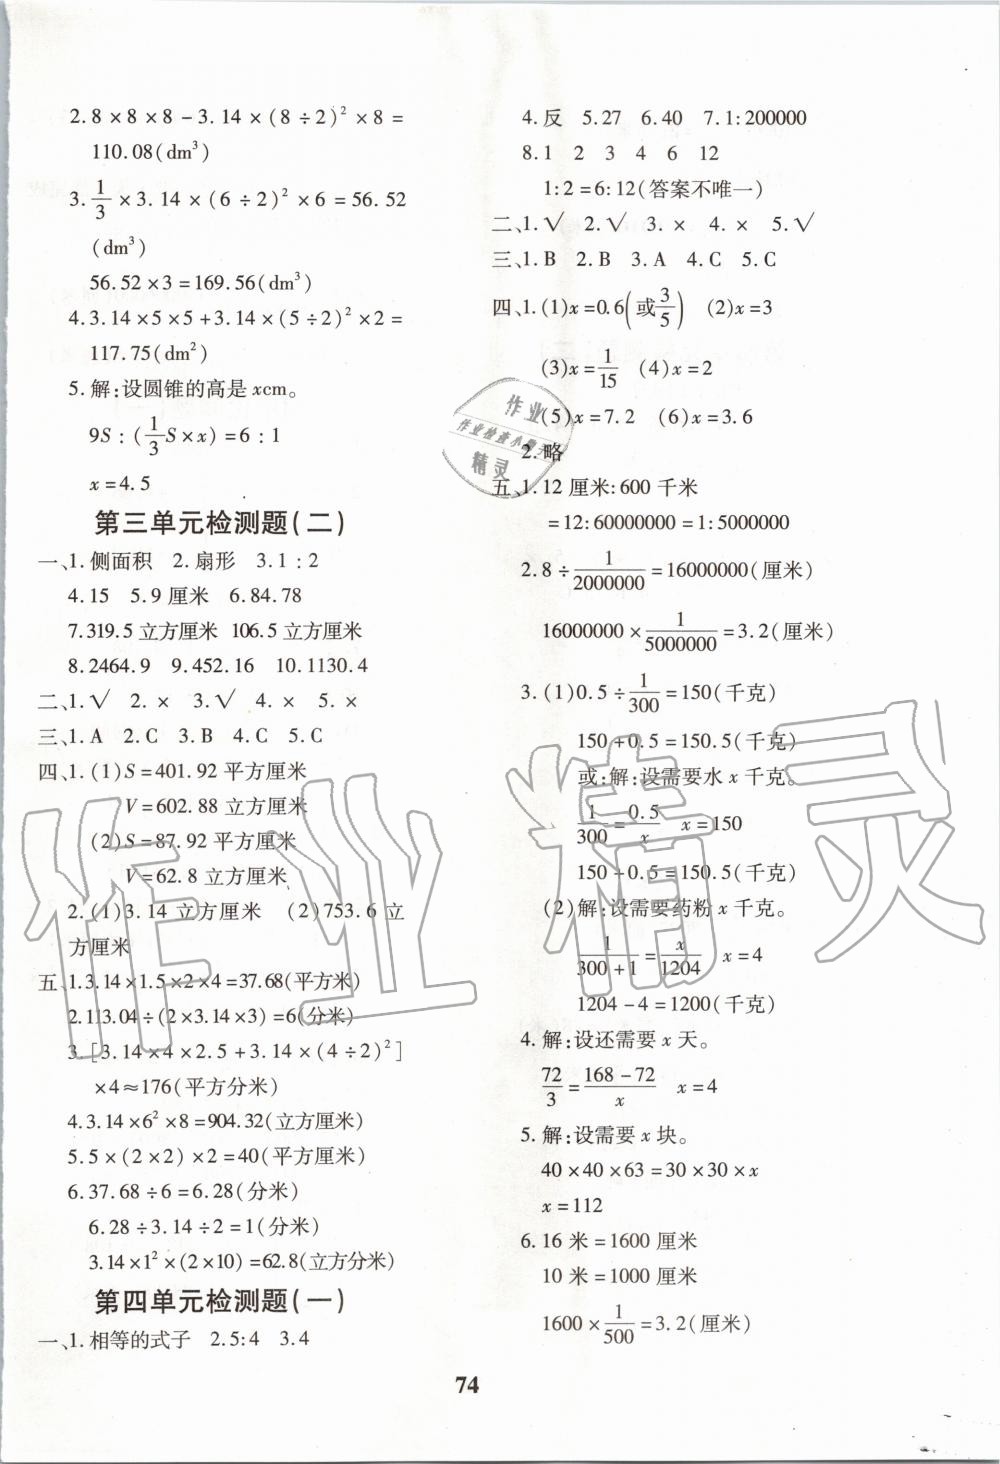 2.8×8×8-3.14×(8÷2)²×8=
110.08(dm³)
3.1/3×3.14×(6÷2)²×6=56.52
(dm³)
56.52×3=169.56(dm³)
4.3.14×5×5+3.14×(5÷2)²×2=
117.75(dm²)
5.解:设圆锥的高是xcm。
9S:(1/3S×x)=6:1
x=4.5
第三单元检测题(二)
一、1.侧面积 2.扇形 3.1:2
4.15 5.9厘米 6.84.78
7.319.5立方厘米 106.5立方厘米
8.2464.9 9.452.16 10.1130.4
二、1.√ 2.× 3.√ 4.× 5.×
三、1.A 2.C 3.B 4.C 5.C
四、1.(1)S=401.92平方厘米
V=602.88立方厘米
(2)S=87.92平方厘米
V=62.8立方厘米
2.(1)3.14立方厘米 (2)753.6立
方厘米
五、1.3.14×1.5×2×4=37.68(平方米)
2.113.04÷(2×3.14×3)=6(分米)
3.[3.14×4×2.5+3.14×(4÷2)²]
×4≈176(平方分米)
4.3.14×6²×8=904.32(立方厘米)
5.5×(2×2)×2=40(平方厘米)
6.37.68÷6=6.28(分米)
6.28÷3.14÷2=1(分米)
3.14×1²×(2×10)=62.8(立方分米)
第四单元检测题(一)
一、1.相等的式子 2.5:4 3.4
4.反 5.27 6.40 7.1:200000
8.1 2 3 4 6 12
1:2=6:12(答案不唯一)
二、1.√ 2.√ 3.× 4.× 5.√
三、1.B 2.B 3.A 4.C 5.C
四、1.(1)x=0.6(或3/5) (2)x=3
(3)x=1/15 (4)x=2
(5)x=7.2 (6)x=3.6
2.略
五、1.12厘米:600千米
=12:60000000=1:5000000
2.8÷1/2000000=16000000(厘米)
16000000×1/5000000=3.2(厘米)
3.(1)0.5÷1/300=150(千克)
150+0.5=150.5(千克)
或:解:设需要水x千克。
1/300=0.5/x x=150
150+0.5=150.5(千克)
(2)解:设需要药粉x千克。
1/300+1=x/1204 x=4
1204-4=1200(千克)
4.解:设还需要x天。
72/3=168-72/x x=4
5.解:设需要x块。
40×40×63=30×30×x
x=112
6.16米=1600厘米
10米=1000厘米
1600×1/500=3.2(厘米)
74
作业
作业检查小精灵
精灵
作业精灵